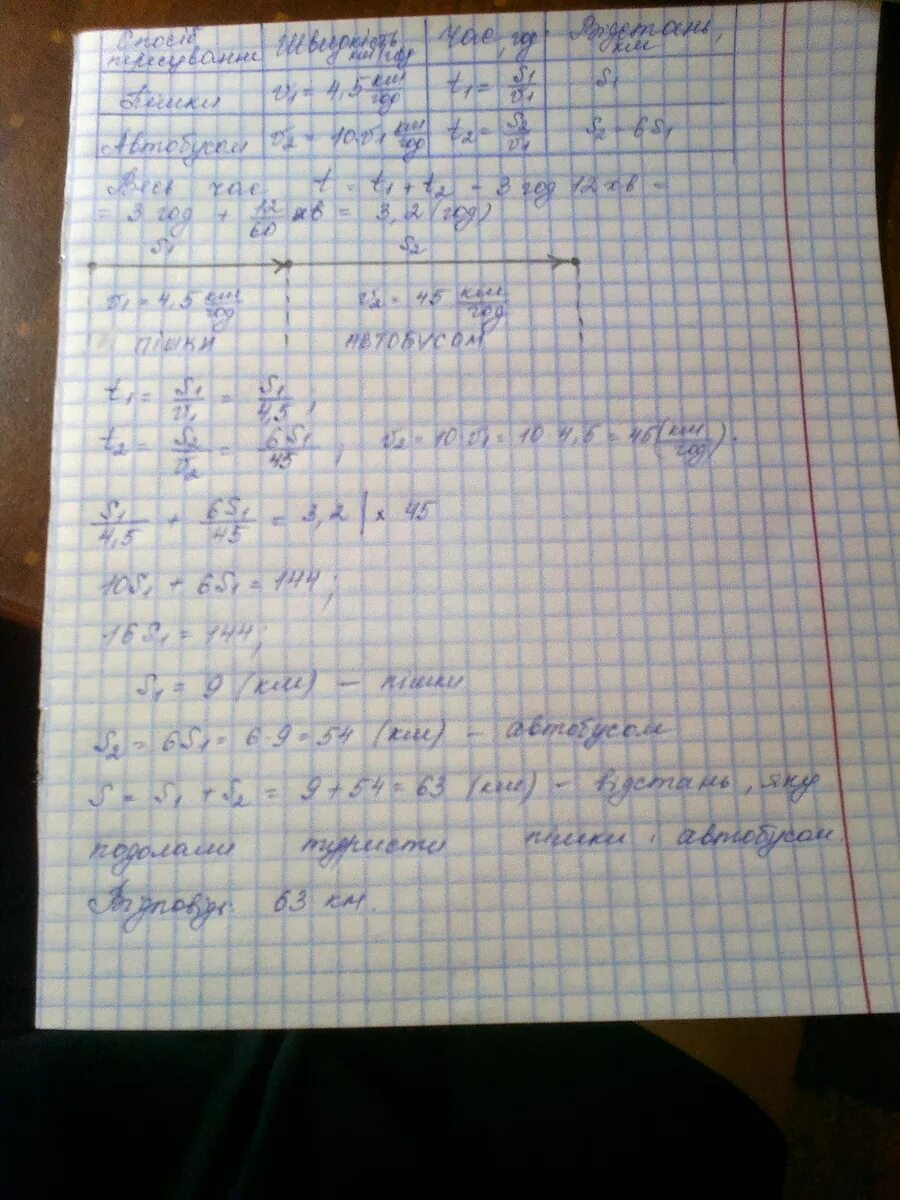 Спосіб пересування Швидкість, км/год Час, год Відстань, км
Пішки v₁ = 4,5 км/год t₁ = S₁/v₁ S₁
Автобусом v₂ = 10v₁ км/год t₂ = S₂/v₁ S₂ = 6S₁
Весь час t = t₁ + t₂ = 3 год 12 хв =
= 3 год + 12/60 хв = 3,2 (год)
S₁ S₂
v₁ = 4,5 км/год v₂ = 45 км/год
пішки автобусом
t₁ = S₁/v₁ = S₁/4,5;
t₂ = S₂/v₂ = 6S₁/45; v₂ = 10·v₁ = 10·4,5 = 45 (км/год).
S₁/4,5 + 6S₁/45 = 3,2 | × 45
10S₁ + 6S₁ = 144;
16S₁ = 144;
S₁ = 9 (км) – пішки
S₂ = 6S₁ = 6·9 = 54 (км) – автобусом
S = S₁ + S₂ = 9 + 54 = 63 (км) – відстань, яку
подолали туристи пішки і автобусом.
Відповідь: 63 км.